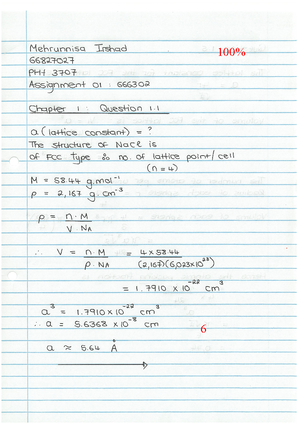 Mehrunnisa Irshad
100%
66827027
PHY 3707
Assignment 01 : 666302
Chapter 1 : Question 1.1
a (lattice constant) = ?
The structure of NaCl is
of FCC type ∴ no. of lattice point/cell
(n = 4)
M = 58.44 g.mol⁻¹
ρ = 2,167 g.cm⁻³
ρ = n.M / V NA
∴ V = n.M / ρ.NA = 4x58.44 / (2,167)(6,023x10²³)
= 1.7910 x 10⁻²² cm³
a³ = 1.7910x10⁻²² cm³
∴ a = 5.6368 x10⁻⁸ cm
6
a ≈ 5.64 Å